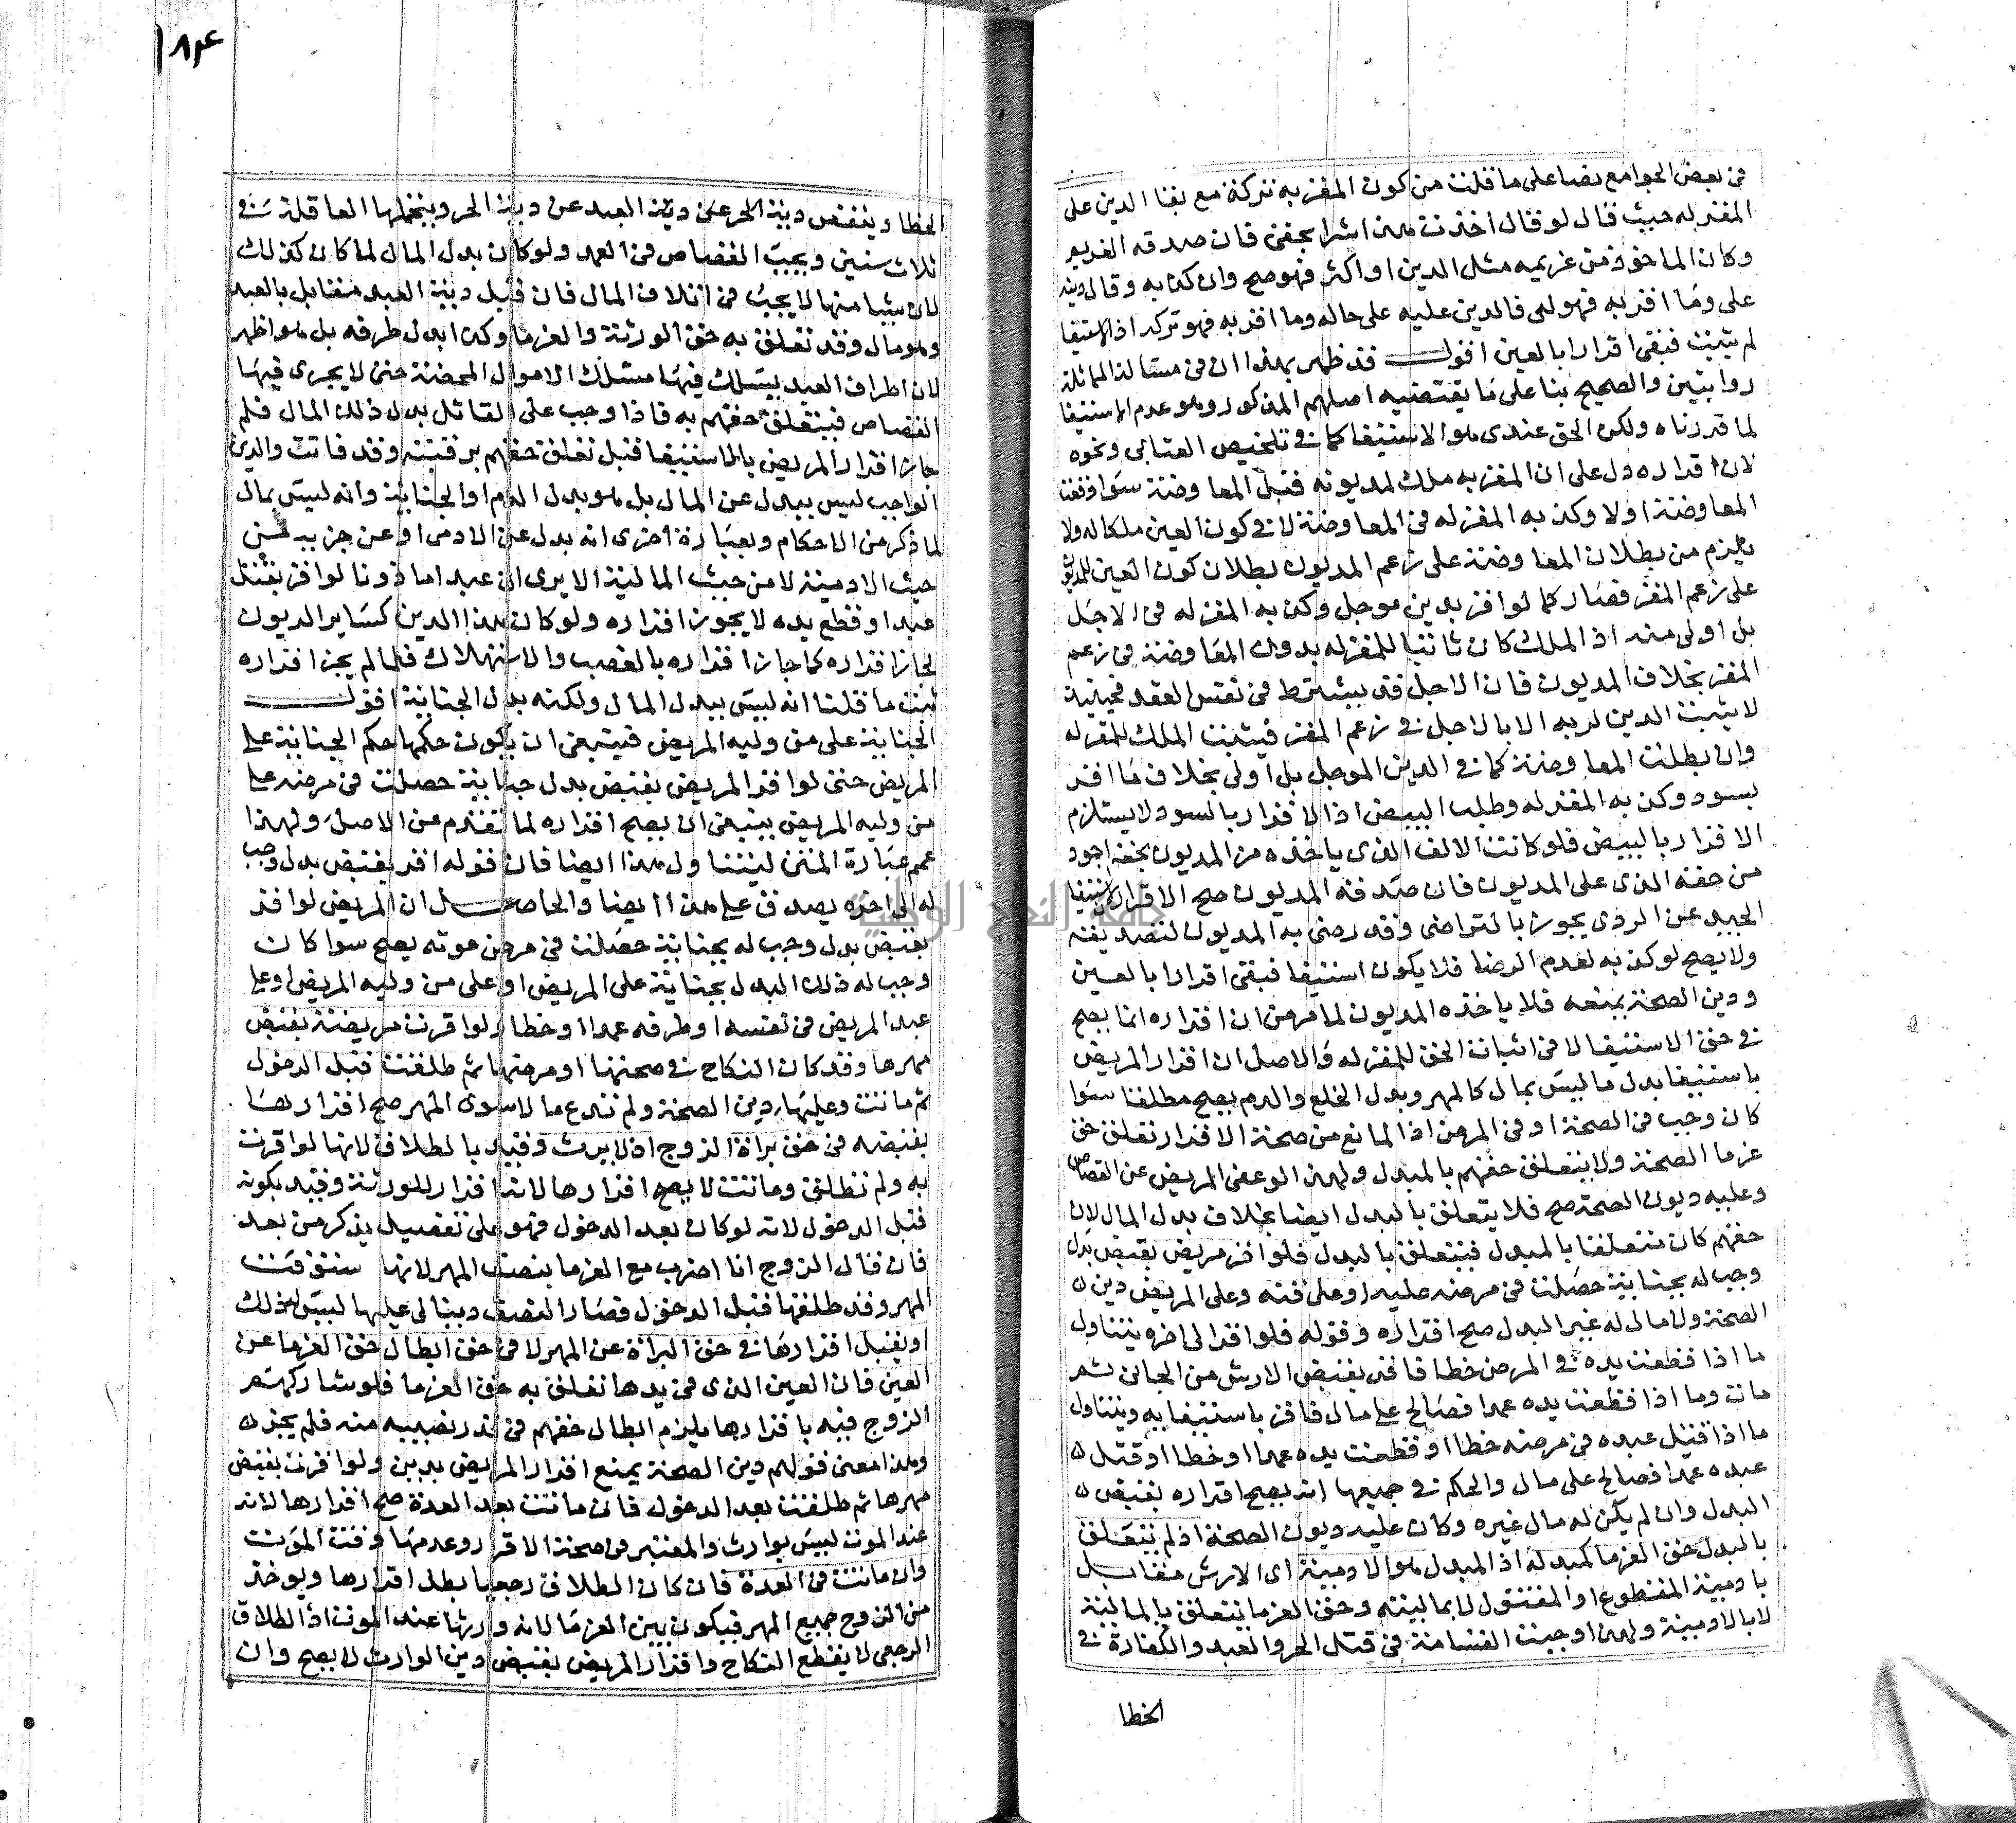 في بعض الجوامع نصا على ما قلت من كون المقر به تركة مع بقا الدين على
المقر له حيث قال لو قال اخذت هذا شرا بحقي فان صدقه الغريم
وكان الماخوذ من غريمه مثل الدين او اكثر فهو صح وان كذبه وقال دينه
على وما اقر به فهو لي فالدين عليه على حاله وما اقر به فهو تركه اذ الاستيفا
لم يثبت فبقي اقرارا بالعين اقول فقد ظهر بهذا ان في مسئالة المماثلة
روايتين والصحيح بنا على ما يقتضيه اصلهم المذكور وهو عدم الاستيفا
لما قررناه ولكن الحق عندي هو الاستيفا كما في تلخيص العتابي ونحوه
لان اقراره دل على ان المقر به ملك لمديونه قبل المعاوضة سوا وقعت
المعاوضة اولا وكذبه المقر له في المعاوضة لا في كون العين ملكا له ولا
يلزم من بطلان المعاوضة على زعم المديون بطلان كون العين للمديون
على زعم المقر فصار كما لو اقر بدين موجل وكذبه المقر له في الاجل
بل اولى منه اذ الملك كان ثابتا للمقر له بدون المعاوضة في زعم
المقر بخلاف المديون فان الاجل قد يشترط في نفس العقد فحينئذ
لا يثبت الدين لربه الا بالاجل في زعم المقر فيثبت الملك للمقر له
وان بطلت المعاوضة كما في الدين الموجل بل اولى بخلاف ما اقر
بسود وكذبه المقر له وطلب البيض اذ الاقرار بالسود لا يستلزم
الاقرار بالبيض فلو كانت الالف الذي ياخذه من المديون بحقه اجود
من حقه الذي على المديون فان صدقه المديون صح الاقرار لان استيفا
الجيد عن الردي يجوز بالتراضي وقد رضي به المديون لتصديقه
ولا يصح لو كذبه لعدم الرضا فلا يكون استيفا فبقي اقرارا بالعين
ودين الصحة يمنعه فلا ياخذه المديون لما مر من ان اقراره انما يصح
في حق الاستيفا لا في اثبات الحق للمقر له والاصل ان اقرار المريض
باستيفا بدل ما ليس بمال كالمهر وبدل الخلع والدم يصح مطلقا سوا
كان وجب في الصحة او في المرض اذ المانع من صحة الاقرار تعلق حق
غرما الصحة ولا يتعلق حقهم بالمبدل ولهذا لو عفى المريض عن القصاص
وعليه ديون الصحة صح فلا يتعلق بالبدل ايضا بخلاف بدل المال لان
حقهم كان متعلقا بالمبدل فيتعلق بالبدل فلو اقر مريض بقبض بدل
وجب له بجناية حصلت في مرضه عليه او على قنه وعلى المريض دين
الصحة ولا مال له غير البدل صح اقراره وقوله فلو اقر الى اخره يتناول
ما اذا قطعت يده في المرض خطا فاقر بقبض الارش من الجاني ثم
مات وما اذا قطعت يده عمدا فصالح على مال فاقر باستيفايه ويتناول
ما اذا قتل عبده في مرضه خطا او قطعت يده عمدا او خطا او قتل
عبده عمدا فصالح على مال والحكم في جميعها انه يصح اقراره بقبض
البدل وان لم يكن له مال غيره وكان عليه ديون الصحة اذ لم يتعلق
بالبدل حق الغرما كمبدله اذ المبدل هو الادمية اي الارش مقابل
بادمية المقطوع او المقتول لا بماليته وحق الغرما يتعلق بالمالية
لا بالادمية ولهذا وجبت القسامة في قتل الحر والعبد والكفارة في
الخطا
١٨٣
الخطا وينقص دية الحر على دية العبد عن دية الحر ويتحملها العاقلة في
ثلاث سنين ويجب القصاص في العمد ولو كان بدل المال لما كان كذلك
لان شيا منها لا يجب في اتلاف المال فان قيل دية العبد مقابل بالعبد
وهو مال وقد تعلق به حق الورثة والغرما وكذا بدل طرفه بل هو اظهر
لان اطراف العبد يسلك فيها مسلك الاموال المحضة حتى لا يجري فيها
القصاص فيتعلق حقهم به فاذا وجب على القاتل بدل ذلك المال فلم
جاز اقرار المريض بالاستيفا قبل تعلق حقهم برقبته وقد فاتت والذي
الواجب ليس ببدل عن المال بل هو بدل الدم او الجناية وانه ليس بمال
لما ذكر من الاحكام وبعبارة اخرى انه بدل عن الادمي او عن جزيه من
حيث الادمية لا من حيث المالية الا يرى ان عبدا ماذونا لو اقر بقتل
عبد او قطع يده لا يجوز اقراره ولو كان هذا الدين كساير الديون
لجاز اقراره كما جاز اقراره بالغصب والاستهلاك فلما لم يجز اقراره
ثبت ما قلنا انه ليس ببدل المال ولكنه بدل الجناية اقول
الجناية على من وليه المريض فينبغي ان يكون حكمها حكم الجناية على
المريض حتى لو اقر المريض بقبض بدل جناية حصلت في مرضه على
من وليه المريض ينبغي ان يصح اقراره لما تقدم من الاصل ولهذا
عمم عبارة المتن ليتناول هذا ايضا فان قوله اقر بقبض بدل وجب
له الى اخره يصدق على هذا ايضا والحاصل ان المريض لو اقر
بقبض بدل وجب له بجناية حصلت في مرض موته يصح سوا كان
وجب له ذلك البدل بجناية على المريض او على من وليه المريض او على
عبد المريض في نفسه او طرفه عمدا او خطا ولو اقرت مريضة بقبض
مهرها وقد كان النكاح في صحتها او مرضها ثم طلقت قبل الدخول
ثم ماتت وعليها دين الصحة ولم تدع مالا سوى المهر صح اقرارها
بقبضه في حق براة الزوج اذ لا يرث وقيد بالطلاق لانها لو اقرت
به ولم تطلق وماتت لا يصح اقرارها لانه اقرار للورثة وقيد بكونه
قبل الدخول لانه لو كان بعد الدخول فهو على تفصيل يذكر من بعد
فان قال الزوج انا اضرب مع الغرما بنصف المهر لانها ستوفت
المهر وقد طلقها قبل الدخول فصار النصف دينا لي عليها ليس له ذلك
اويقبل اقرارها في حق البراة عن المهر لا في حق ابطال حق الغرما عن
العين فان العين الذي في يدها تعلق به حق الغرما فلو شاركهم
الزوج فيه باقرارها يلزم ابطال حقهم في قدر نصيبه منه فلم يجز
وهذا معنى قولهم دين الصحة يمنع اقرار المريض بدين ولو اقرت بقبض
مهرها ثم طلقت بعد الدخول فان ماتت بعد العدة صح اقرارها لانه
عند الموت ليس بوارث والمعتبر في صحة الاقرار وعدمها وقت الموت
وان ماتت في العدة فان كان الطلاق رجعيا بطل اقرارها ويوخذ
من الزوج جميع المهر فيكون بين الغرما لانه وارثها عند الموت اذ الطلاق
الرجعي لا يقطع النكاح واقرار المريض بقبض دين الوارث لا يصح وان
جامعة النجاح الوطنية